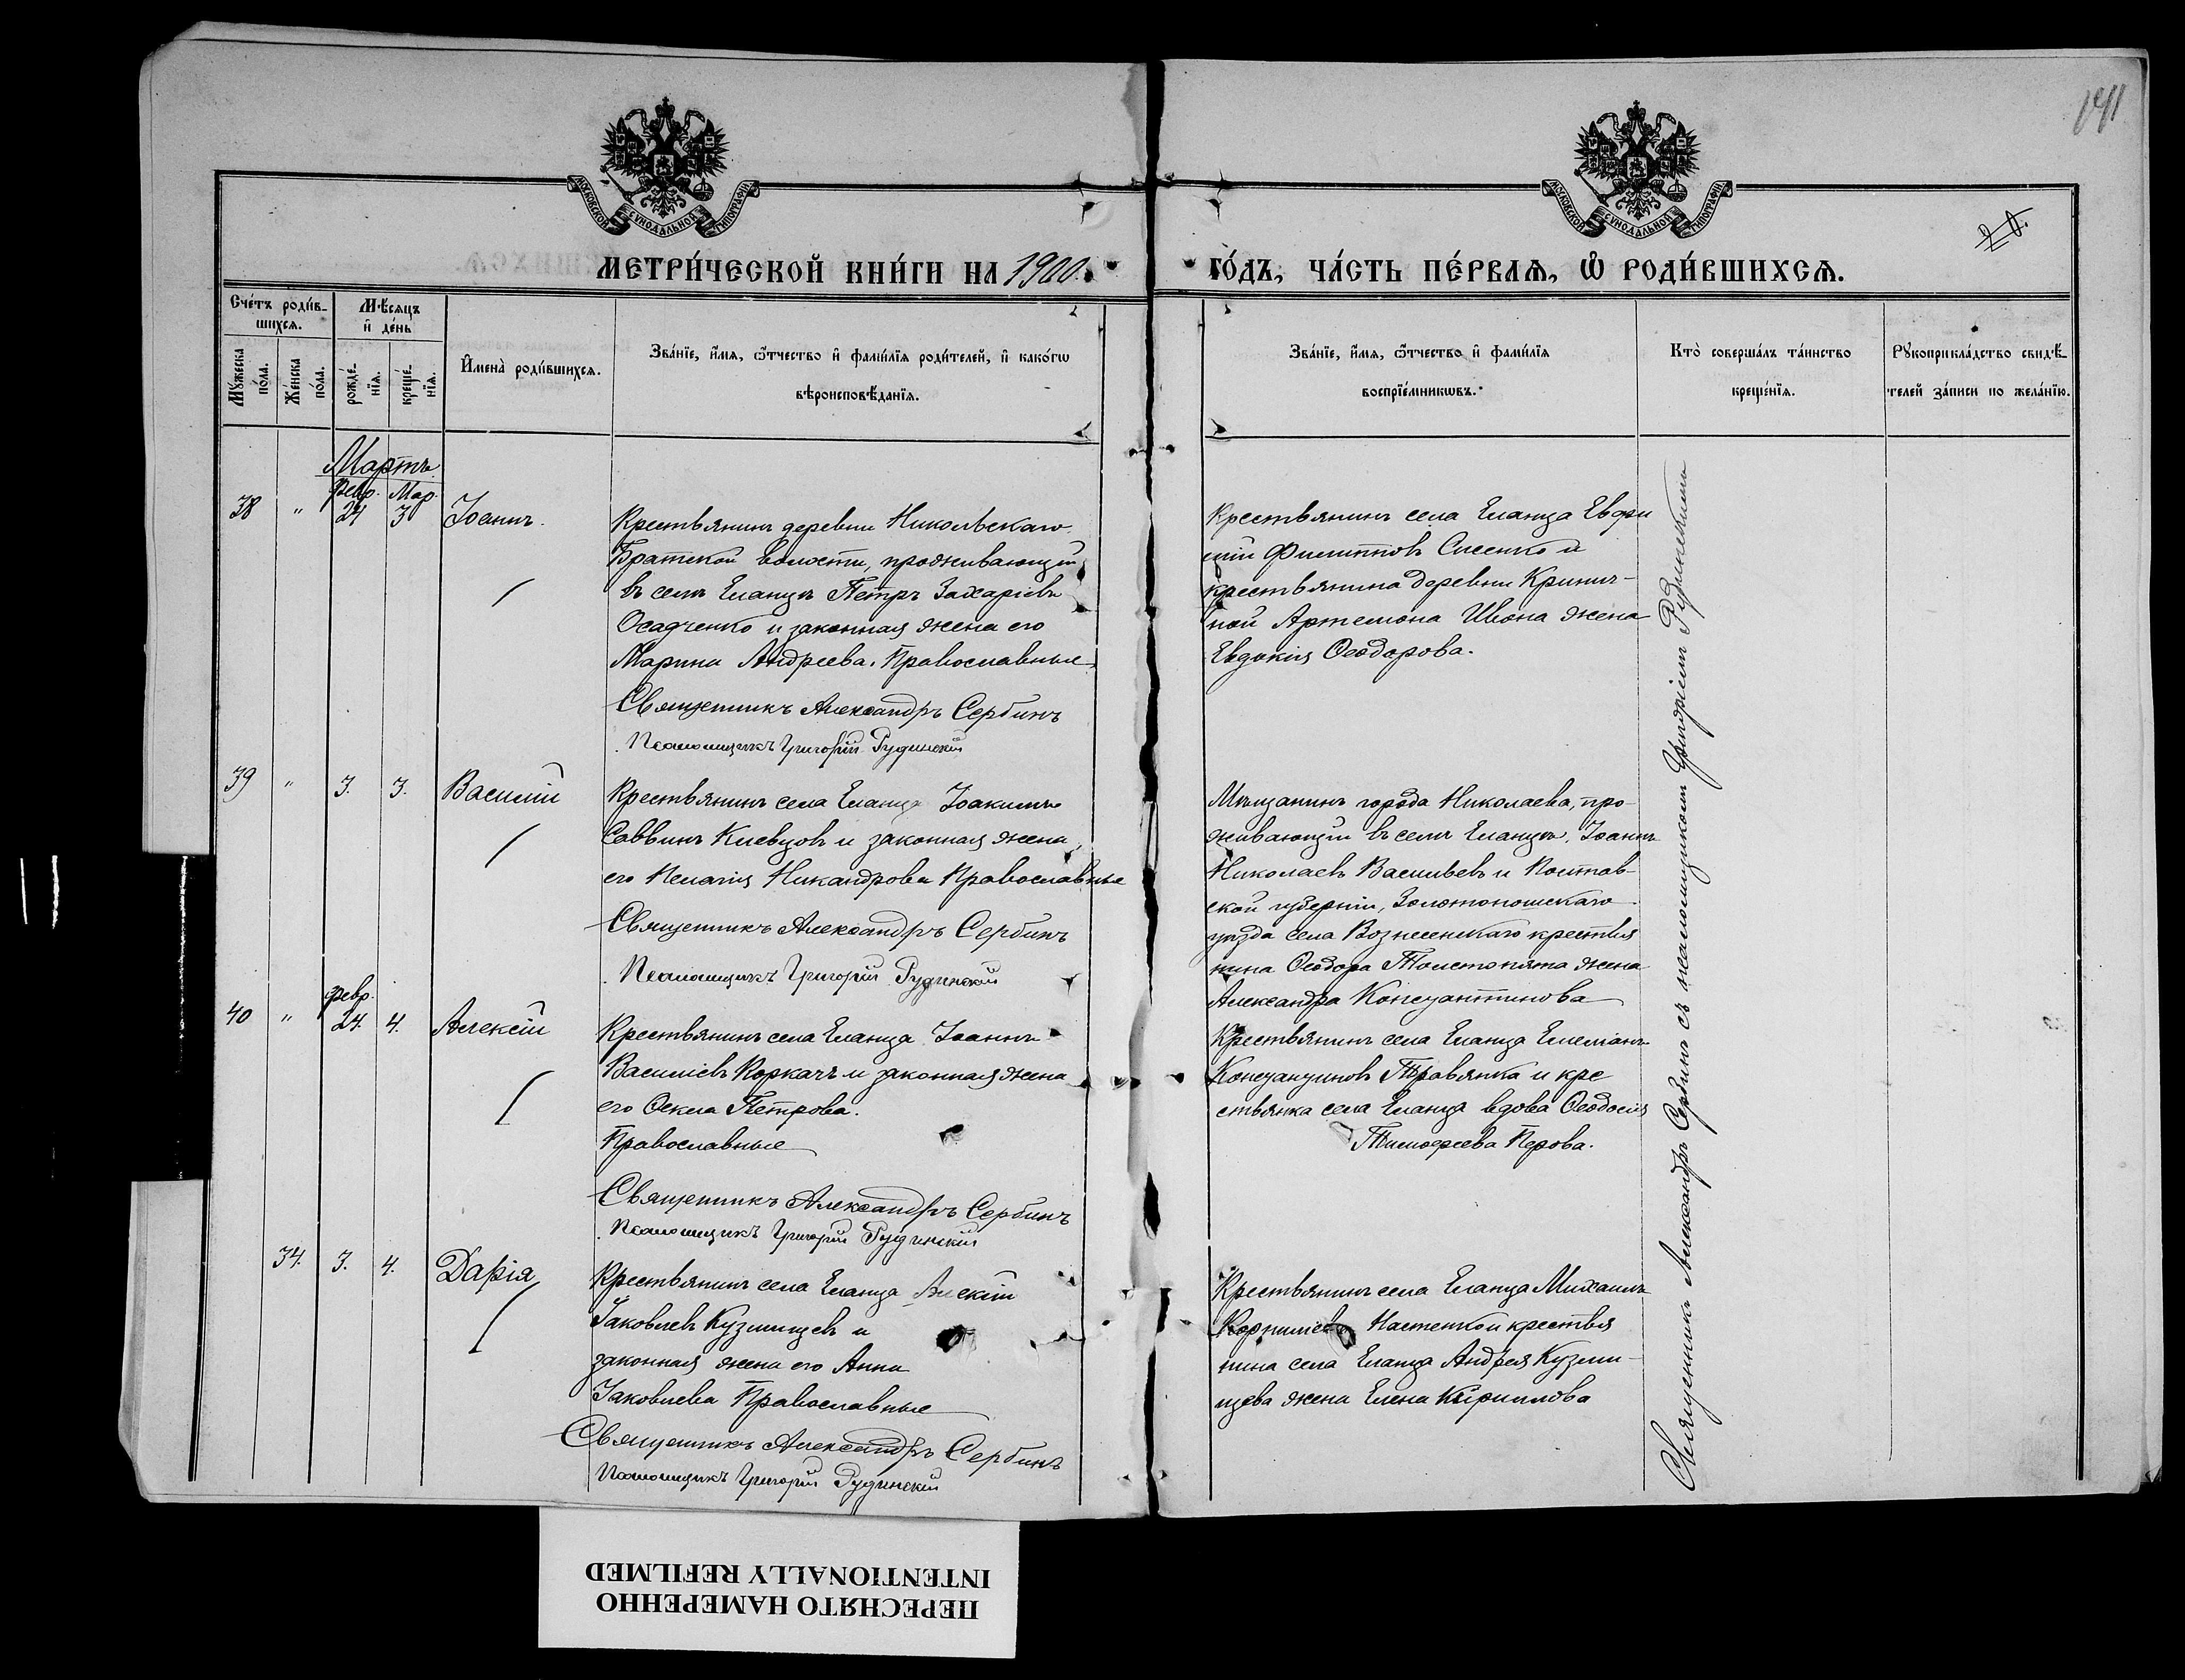 141
МОСКОВСКОЙ СУНОДАЛЬНОЙ ТИПОГРАФІИ
МОСКОВСКОЙ СУНОДАЛЬНОЙ ТИПОГРАФІИ
МЕТРИ́ЧЕСКОЙ КНИ́ГИ НА 1900.
ГО́ДЪ, ЧА́СТЬ ПЕ́РВАЯ, Ѡ РОДИ́ВШИХСЯ.
Сче́тъ роди́в-
шихся.
Мѣ́сяцъ
и҆ де́нь
Му́жеска
по́ла.
Же́нска
по́ла.
рожде́-
нїя.
креще́-
нїя.
И҆мена̀ роди́вшихся.
Зва́нїе, и҆́мя, ѻ҆́тчество и҆ фами́лїя роди́телей, и҆ како́гѡ
вѣроисповѣ́данїя.
Зва́нїе, и҆́мя, ѻ҆́тчество и҆ фами́лїя
воспрїе́мникѡвъ.
Кто̀ соверша́лъ та́инство
креще́нїя.
Рꙋкоприкла́дство свидѣ́-
телей за́писи по жела́нїю.
Мартъ
февр. Мар.
38 " 24 3 Іоаннъ.
Крестьянинъ деревни Никольскаго
Братской волости, проживающій
въ селѣ Еланцѣ Петръ Захаріевъ
Осадченко и законная жена его
Марина Андреева. Православные
Священникъ Александръ Сербинъ
Псаломщикъ Григорій Рудинскій
Крестьянинъ села Еланца Евфи
мій Филипповъ Сисенко и
крестьянина деревни Кринич-
ной Артемона Ивона жена
Евдокія Ѳеодорова.
39 " 3. 3. Василій
Крестьянинъ села Еланца Іоакимъ
Саввинъ Киевцовъ и законная жена
его Пелагія Никандрова Православные
Священникъ Александръ Сербинъ
Псаломщикъ Григорій Рудинскій
Мѣщанинъ города Николаева, про-
живающій въ селѣ Еланцѣ, Іоаннъ
Николаевъ Васильевъ и Полтав-
ской губерніи, Золотоношскаго
уѣзда села Вознесенскаго крестья
нина Ѳеодора Толстопята жена
Александра Константинова
февр.
40 " 24. 4. Алексій
Крестьянинъ села Еланца Іоаннъ
Василіевъ Коркачъ и законная жена
его Ѳекла Петрова.
Православные
Священникъ Александръ Сербинъ
Псаломщикъ Григорій Рудинскій
Крестьянинъ села Еланца Емеліанъ
Константиновъ Травянка и кре
стьянка села Еланца вдова Ѳеодосія
Тимофеева Перова.
34. 3. 4. Дарія
Крестьянинъ села Еланца Алексій
Іаковлевъ Кузьмищевъ и
законная жена его Анна
Іаковлева Православные
Священникъ Александръ Сербинъ
Псаломщикъ Григорій Рудинскій
Крестьянинъ села Еланца Михаилъ
Корниліевъ Настенко и крестья
нина села Еланца Андрея Кузьми-
щева жена Елена Кириллова
Священникъ Александръ Сербинъ съ псаломщикомъ Григоріемъ Рудинскимъ
ПЕРЕСНЯТО НАМЕРЕННО
INTENTIONALLY REFILMED